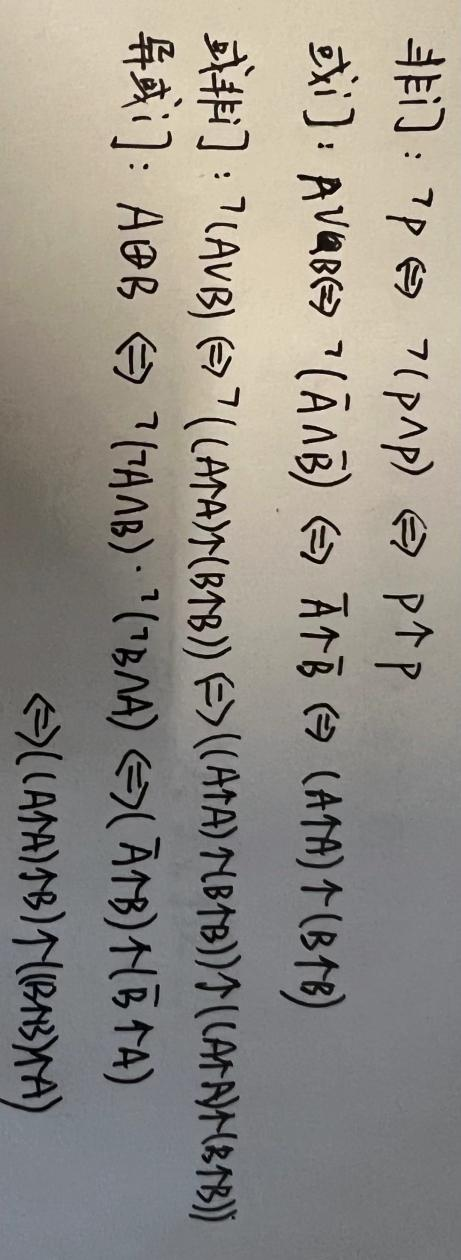 非门: ¬p ⇔ ¬(p∧p) ⇔ p↑p
或门: A∨B ⇔ ¬(Ā∧B̄) ⇔ Ā↑B̄ ⇔ (A↑A)↑(B↑B)
或非门: ¬(A∨B) ⇔ ¬((A↑A)↑(B↑B)) ⇔ ((A↑A)↑(B↑B))↑((A↑A)↑(B↑B))
异或门: A⊕B ⇔ ¬(¬A∧B)·¬(¬B∧A) ⇔ (Ā↑B)↑(B̄↑A)
⇔ ((A↑A)↑B)↑((B↑B)↑A)